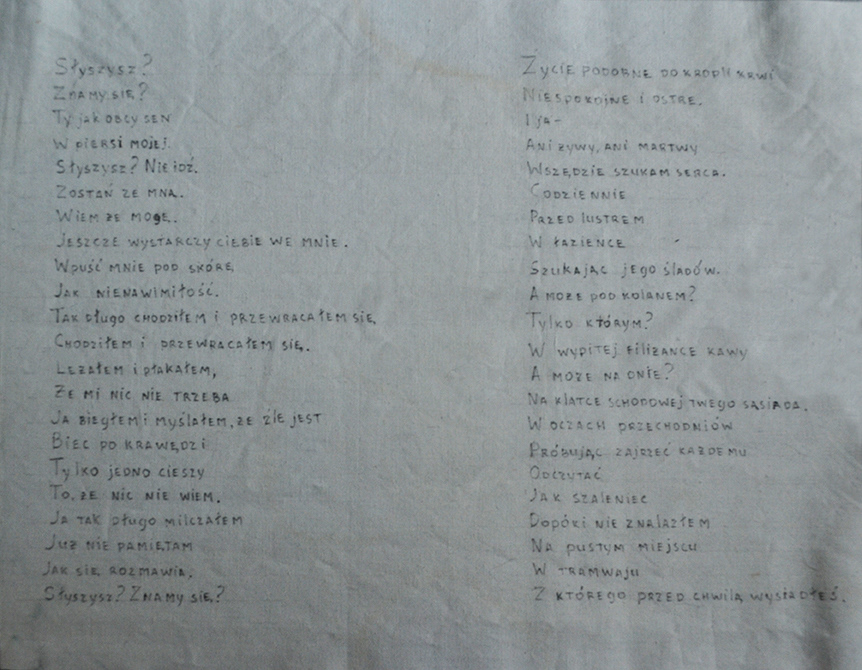 Słyszysz?
Znamy się?
Ty jak obcy sen
w piersi mojej.
Słyszysz? Nie idź.
Zostań ze mną.
Wiem że mogę.
Jeszcze wystarczy ciebie we mnie.
Wpuść mnie pod skórę,
Jak nienawimiłość.
Tak długo chodziłem i przewracałem się,
Chodziłem i przewracałem się.
Leżałem i płakałem,
Że mi nic nie trzeba
Ja biegłem i myślałem, że źle jest
Biec po krawędzi
Tylko jedno cieszy
To, że nic nie wiem.
Ja tak długo milczałem
Już nie pamiętam
Jak się rozmawia,
Słyszysz? Znamy się?
Życie podobne do kropli krwi
Niespokojne i ostre.
I ja-
Ani żywy, ani martwy
Wszędzie szukam serca.
Codziennie
Przed lustrem
W łazience
Szukając jego śladów.
A może pod kolanem?
Tylko którym?
W wypitej filiżance kawy
A może na dnie?
Na klatce schodowej twego sąsiada,
W oczach przechodniów
Próbując zajrzeć każdemu
Odczytać
Jak szaleniec
Dopóki nie znalazłem
Na pustym miejscu
W tramwaju
Z którego przed chwilą wysiadłeś.